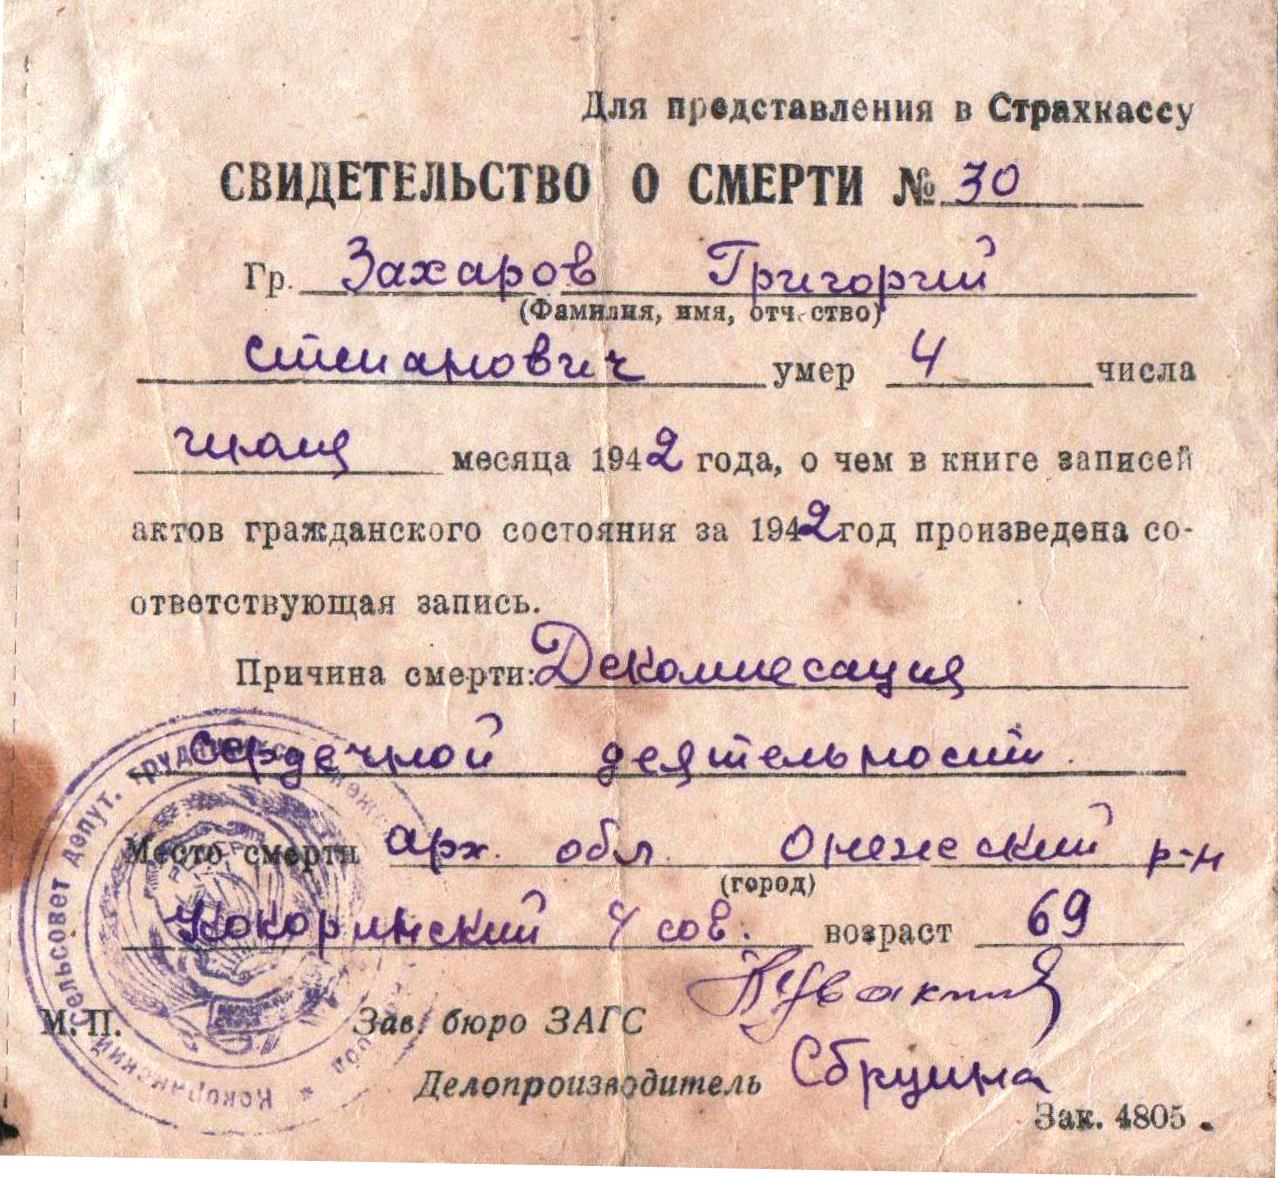 Для представления в Страхкассу
СВИДЕТЕЛЬСТВО О СМЕРТИ № 30
Гр. Захаров Григорий
(Фамилия, имя, отчество)
Степанович умер 4 числа
месяца 1942 года, о чем в книге записей
актов гражданского состояния за 1942 год произведена со-
ответствующая запись.
Причина смерти: Декомпесация
сердечной деятельности.
Место смерти арх. обл. Онежский р-н
(город)
Кокоринский с/сов. возраст 69
М. П. Зав. бюро ЗАГС
Делопроизводитель
Зак. 4805
сельсовет депут. трудящихся
Кокоринский